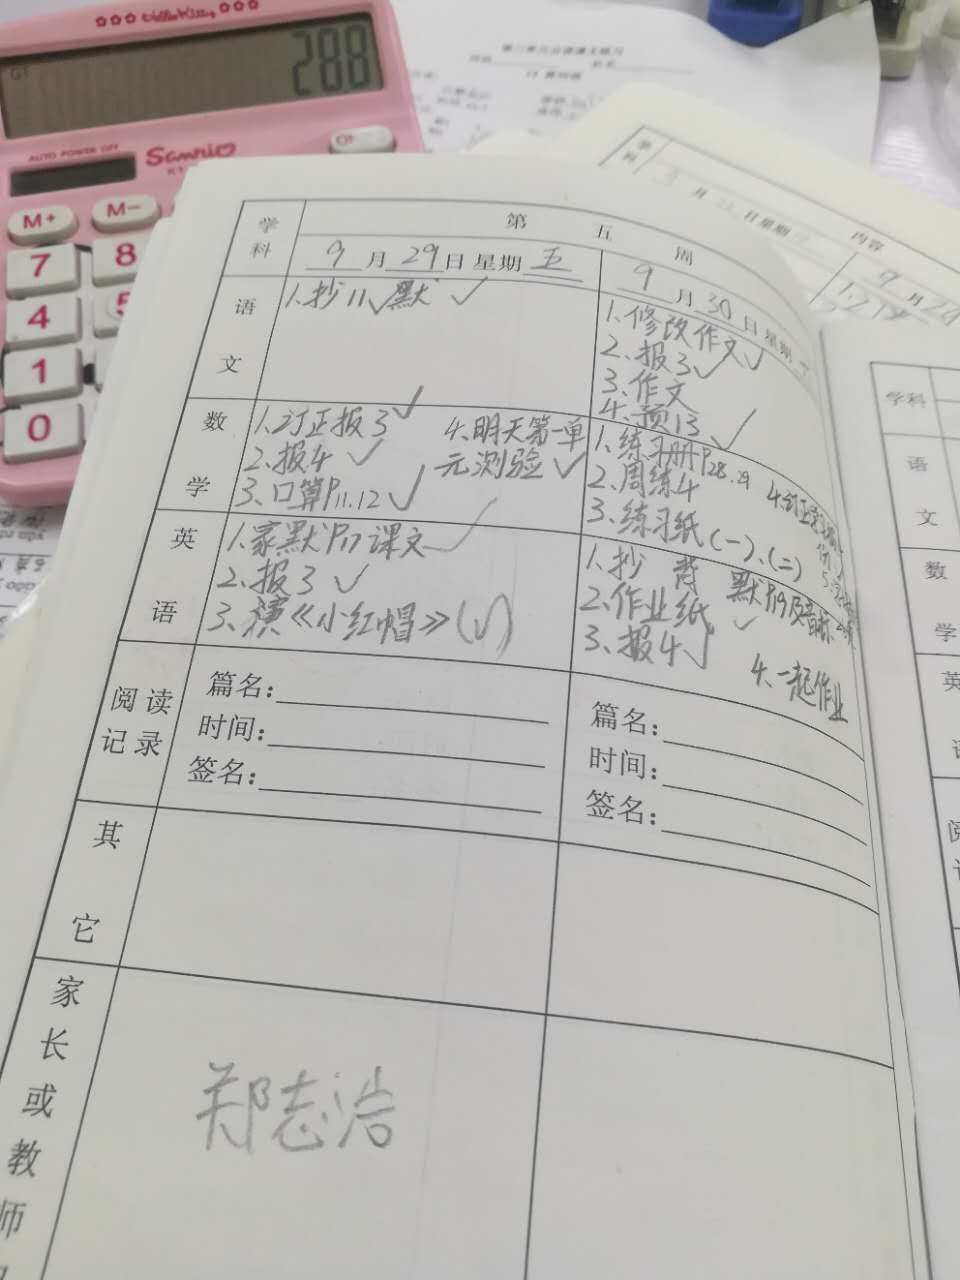 Hello Kitty
GT
288
AUTO POWER OFF
Sanrio
M+
M-
7
8
4
5
1
0
学科
第五周
9月29日星期五
9月30日星期
语文
1.抄11√默√
1.修改作文√
2.报3√
3.作文
4.预13√
数学
1.订正报3√
2.报4√
3.口算P11.12√
4.明天第一单
元测验√
1.练习册P28.29
2.周练4
3.练习纸(一)、(二)
英语
1.家默P17课文√
2.报3√
3.演《小红帽》(√)
1.抄 背 默P19及音标
2.作业纸√
3.报4√
4.一起作业
阅读
记录
篇名：
时间：
签名：
篇名：
时间：
签名：
其它
郑志浩
家长或教师
学科
月 日星期
内容
9月
学科
语文
数学
英